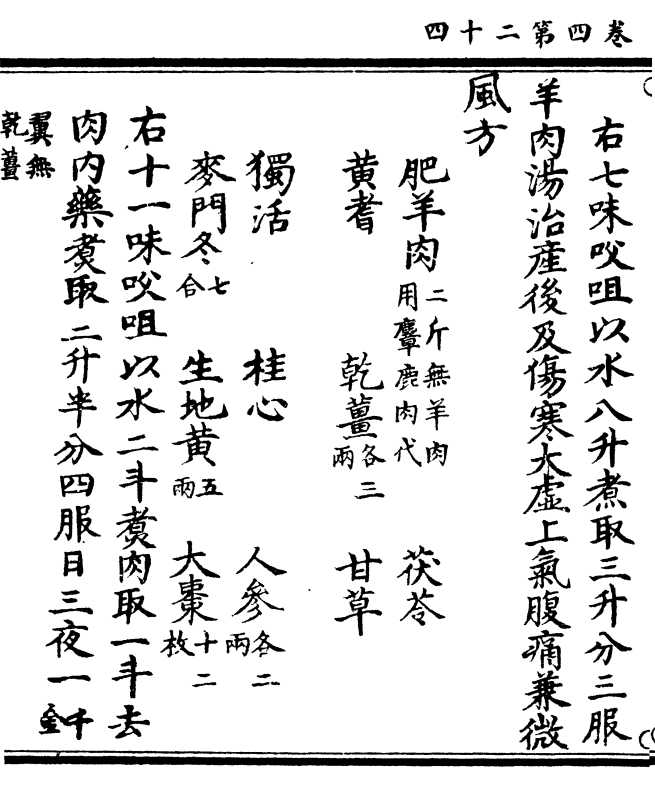 卷四第二十四
右七味㕮咀以水八升煮取三升分三服
羊肉湯治產後及傷寒大虛上氣腹痛兼微
風方
肥羊肉二斤無羊肉用麞鹿肉代 茯苓
黃耆 乾薑各三兩 甘草
獨活 桂心 人參各二兩
麥門冬七合 生地黃五兩 大棗十二枚
右十一味㕮咀以水二斗煑肉取一斗去
肉內藥煑取二升半分四服日三夜一千金
翼無乾薑